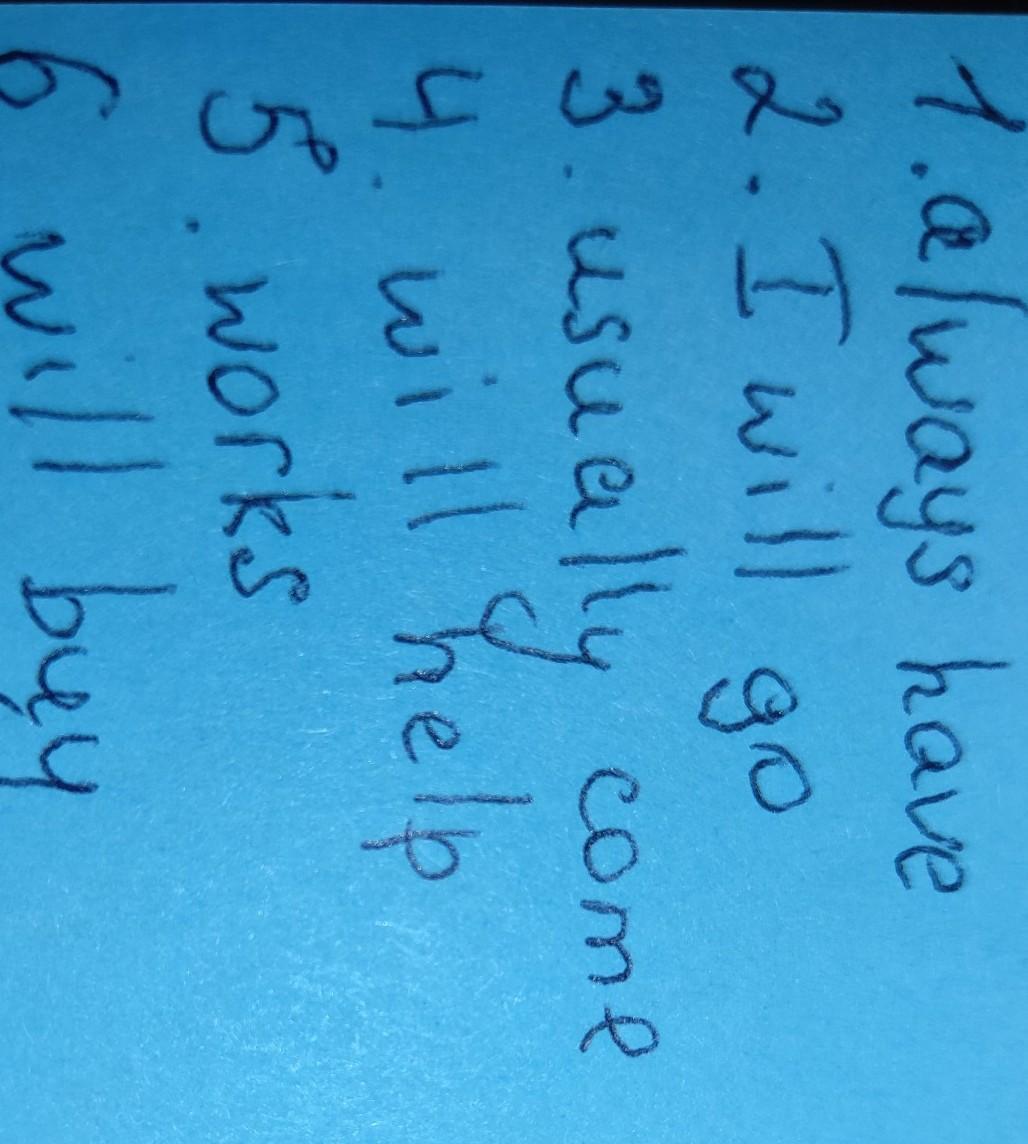 1. always have
2. I will go
3. usually come
4. will help
5. works
6 will buy